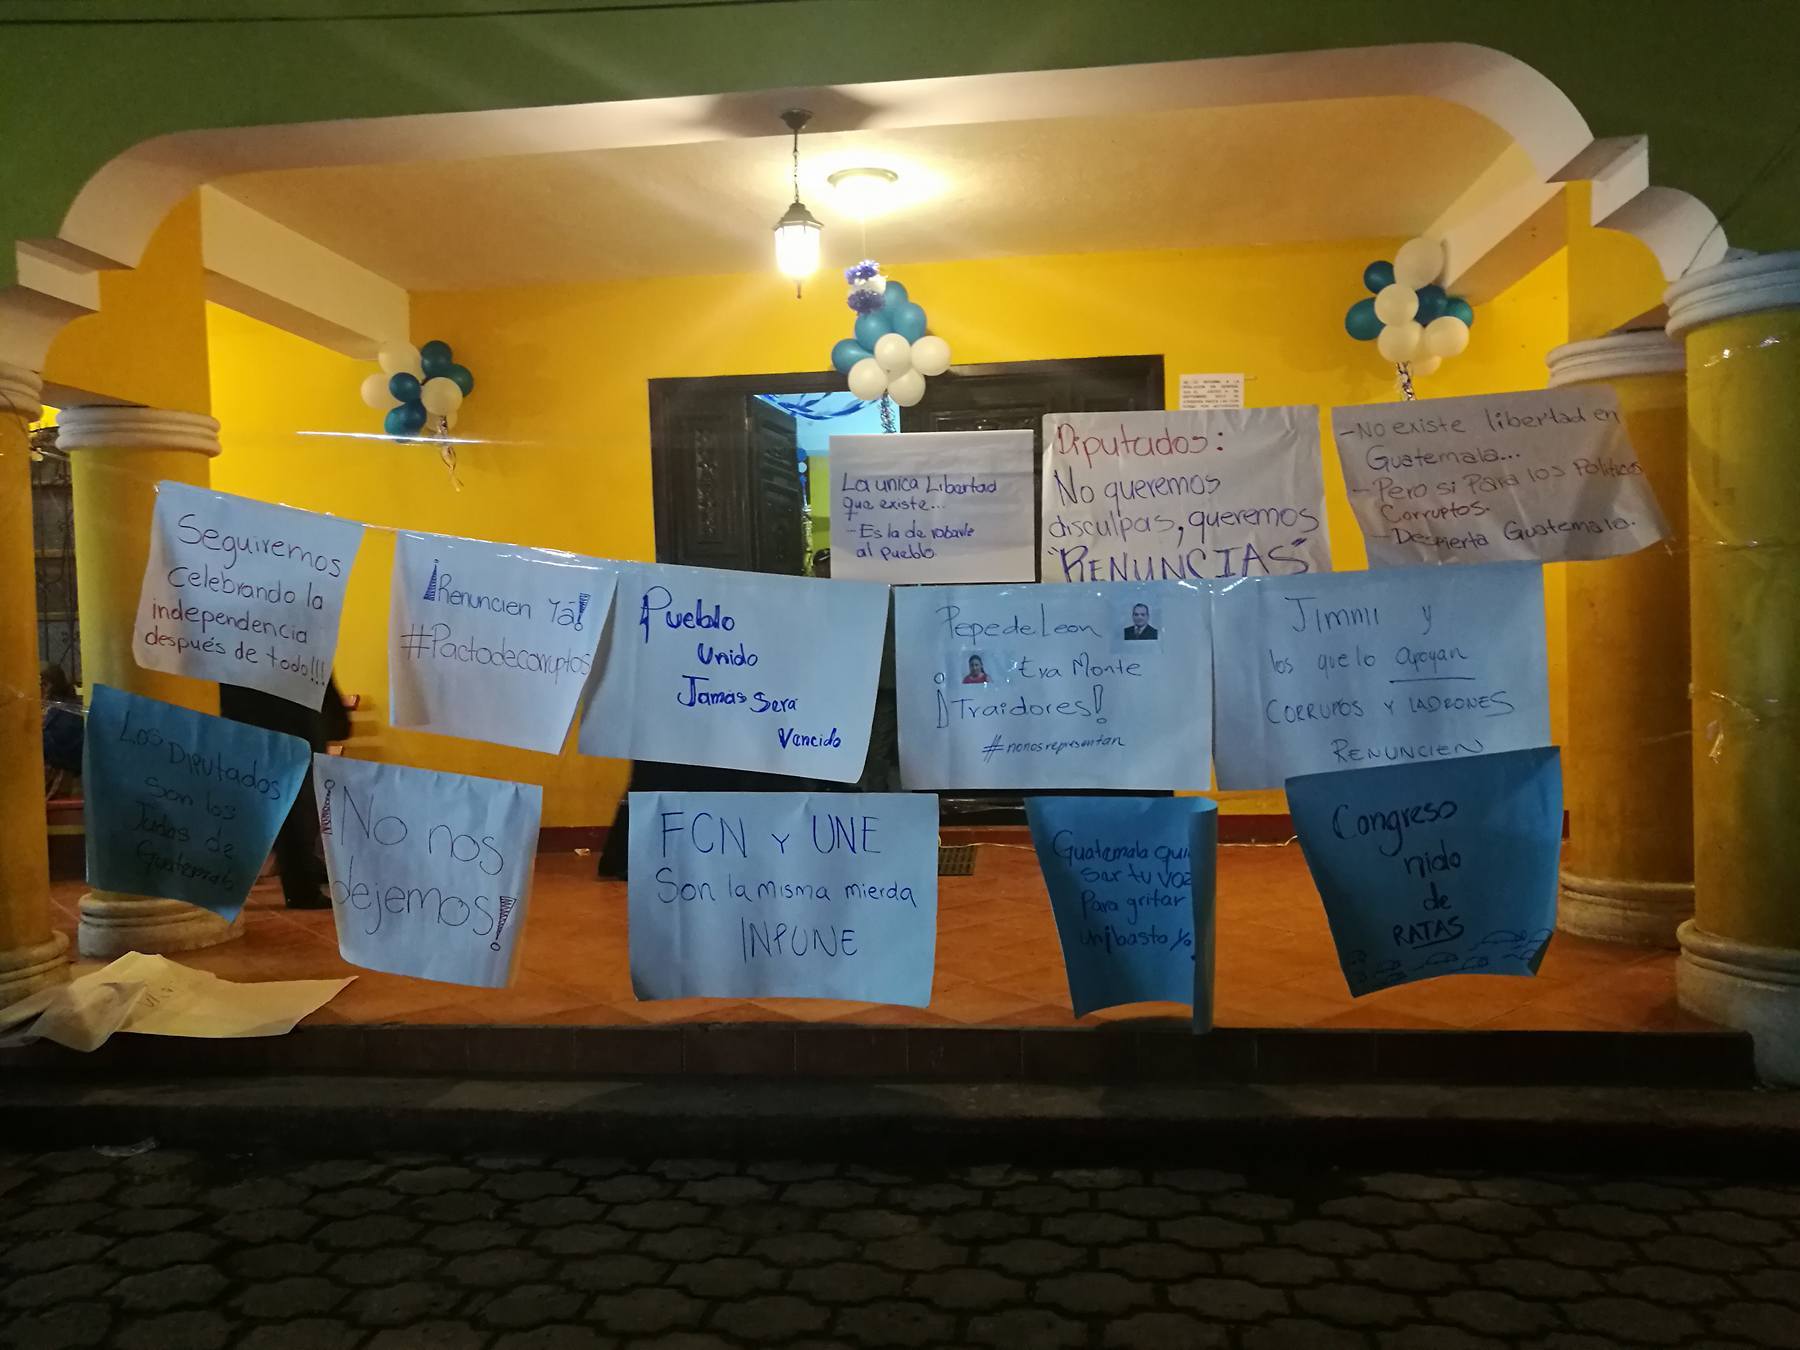 La unica Libertad
que existe...
- Es la de robarle
al pueblo
Diputados:
No queremos
disculpas, queremos
"RENUNCIAS"
- No existe libertad en
Guatemala...
- Pero si para los Politicos
Corruptos.
- Despierta Guatemala.
Seguiremos
Celebrando la
independencia
después de todo!!!
¡Renuncien Yá!
#Pactodecorruptos
Pueblo
Unido
Jamás Será
Vencido
Pepe de Leon
Eva Monte
¡Traidores!
#nonosrepresentan
Jimmi y
los que lo apoyan
CORRUPTOS Y LADRONES
RENUNCIEN
Los Diputados
Son los
Judas de
Guatemala
¡No nos
dejemos!
FCN Y UNE
Son la misma mierda
INPUNE
Guatemala
ser tu voz
Para gritar
un ¡basta Ya!
Congreso
nido
de
RATAS